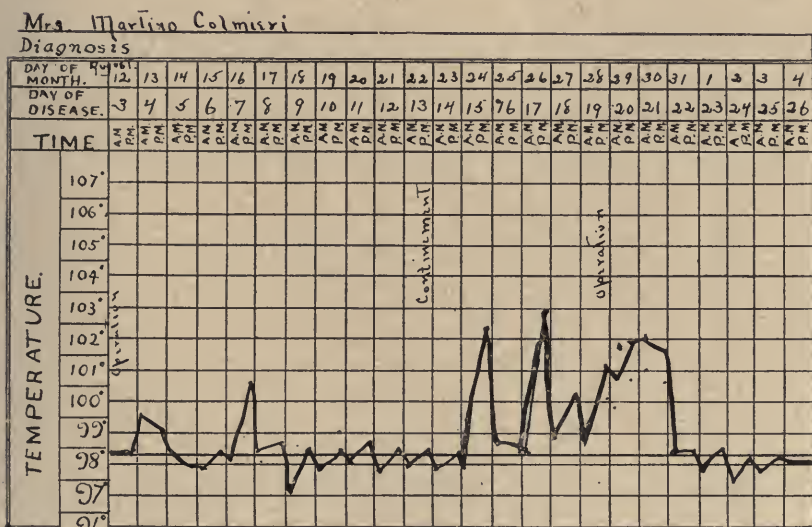 Mrs. Martino Colmieri
Diagnosis
DAY OF MONTH. August. 12 13 14 15 16 17 18 19 20 21 22 23 24 25 26 27 28 29 30 31 1 2 3 4
DAY OF DISEASE. 3 4 5 6 7 8 9 10 11 12 13 14 15 16 17 18 19 20 21 22 23 24 25 26
TIME A.M. P.M. A.M. P.M. A.M. P.M. A.M. P.M. A.M. P.M. A.M. P.M. A.M. P.M. A.M. P.M. A.M. P.M. A.M. P.M. A.M. P.M. A.M. P.M. A.M. P.M. A.M. P.M. A.M. P.M. A.M. P.M. A.M. P.M. A.M. P.M. A.M. P.M. A.M. P.M. A.M. P.M. A.M. P.M. A.M. P.M. A.M. P.M.
TEMPERATURE.
107°
106°
105°
104°
103°
102°
101°
100°
99°
98°
97°
Operation
Continement
Operation